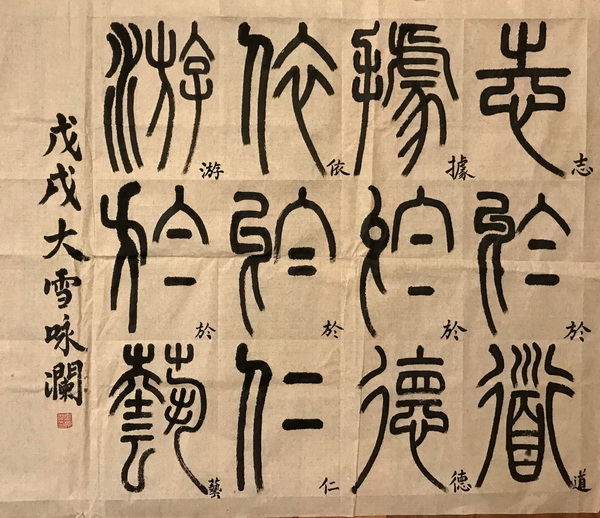 志於道
據於德
依於仁
游於藝
志
於
道
據
於
德
依
於
仁
游
於
藝
戊戌大雪咏瀾